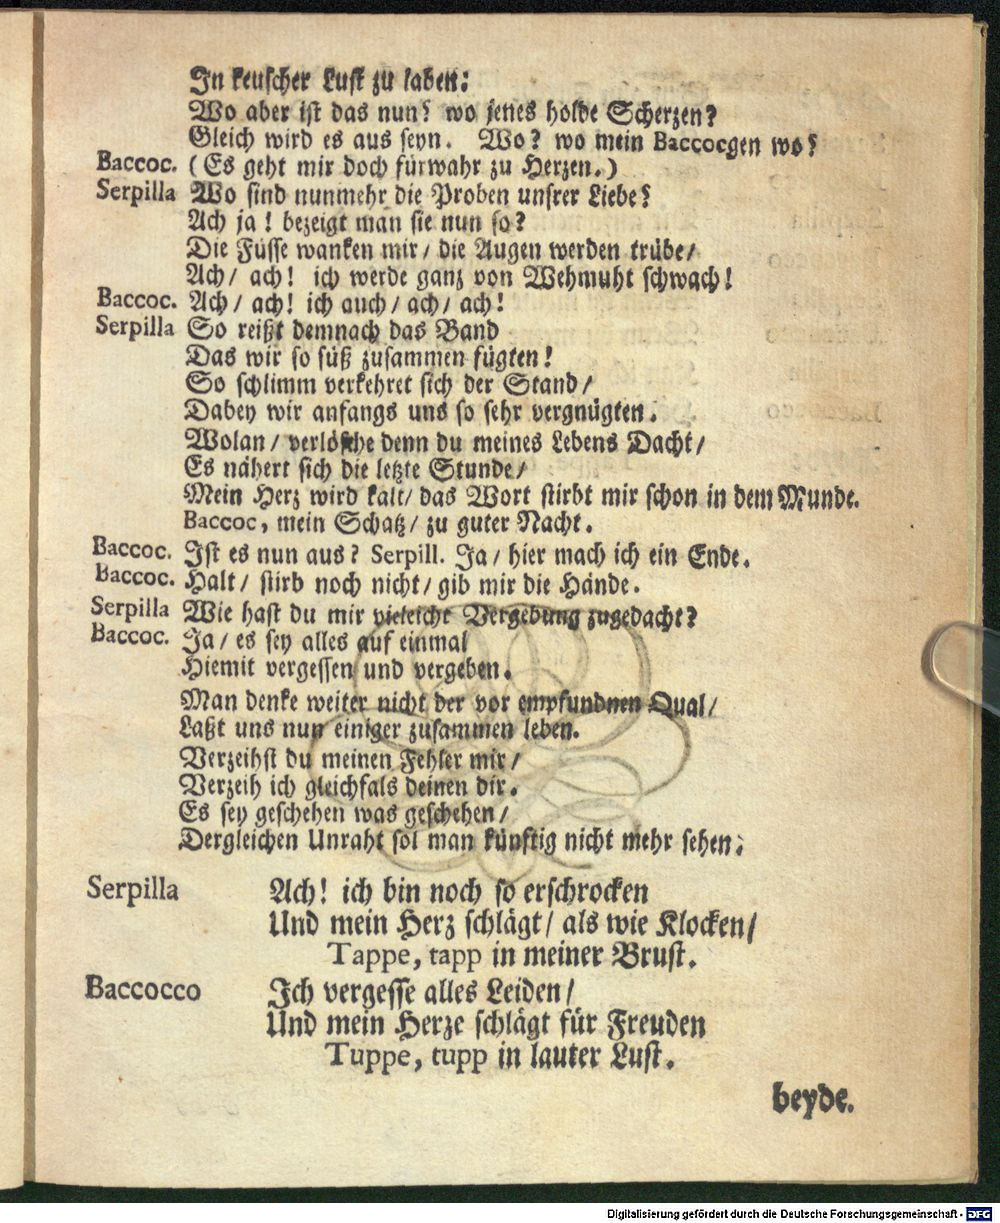 In keuscher Lust zu laben:
Wo aber ist das nun? wo jenes holde Scherzen?
Gleich wird es aus seyn. Wo? wo mein Baccocgen wo?
Baccoc. (Es geht mir doch fürwahr zu Herzen.)
Serpilla Wo sind nunmehr die Proben unsrer Liebe?
Ach ja! bezeigt man sie nun so?
Die Füsse wanken mir/ die Augen werden trübe/
Ach/ ach! ich werde ganz von Wehmuht schwach!
Baccoc. Ach/ ach! ich auch/ ach/ ach!
Serpilla So reißt demnach das Band
Das wir so süß zusammen fügten!
So schlimm verkehret sich der Stand/
Dabey wir anfangs uns so sehr vergnügten.
Wolan/ verlösche denn du meines Lebens Dacht/
Es nähert sich die letzte Stunde/
Mein Herz wird kalt/ das Wort stirbt mir schon in dem Munde.
Baccoc, mein Schatz/ zu guter Nacht.
Baccoc. Ist es nun aus? Serpill. Ja/ hier mach ich ein Ende.
Baccoc. Halt/ stirb noch nicht/ gib mir die Hände.
Serpilla Wie hast du mir vieleicht Vergebung zugedacht?
Baccoc. Ja/ es sey alles auf einmal
Hiemit vergessen und vergeben.
Man denke weiter nicht der vor empfundnen Qual/
Laßt uns nun einiger zusammen leben.
Verzeihst du meinen Fehler mir/
Verzeih ich gleichfals deinen dir.
Es sey geschehen was geschehen/
Dergleichen Unraht sol man künftig nicht mehr sehen.
Serpilla Ach! ich bin noch so erschrocken
Und mein Herz schlägt/ als wie Klocken/
Tappe, tapp in meiner Brust.
Baccocco Ich vergesse alles Leiden/
Und mein Herze schlägt für Freuden
Tuppe, tupp in lauter Lust.
beyde.
Digitalisierung gefördert durch die Deutsche Forschungsgemeinschaft - DFG